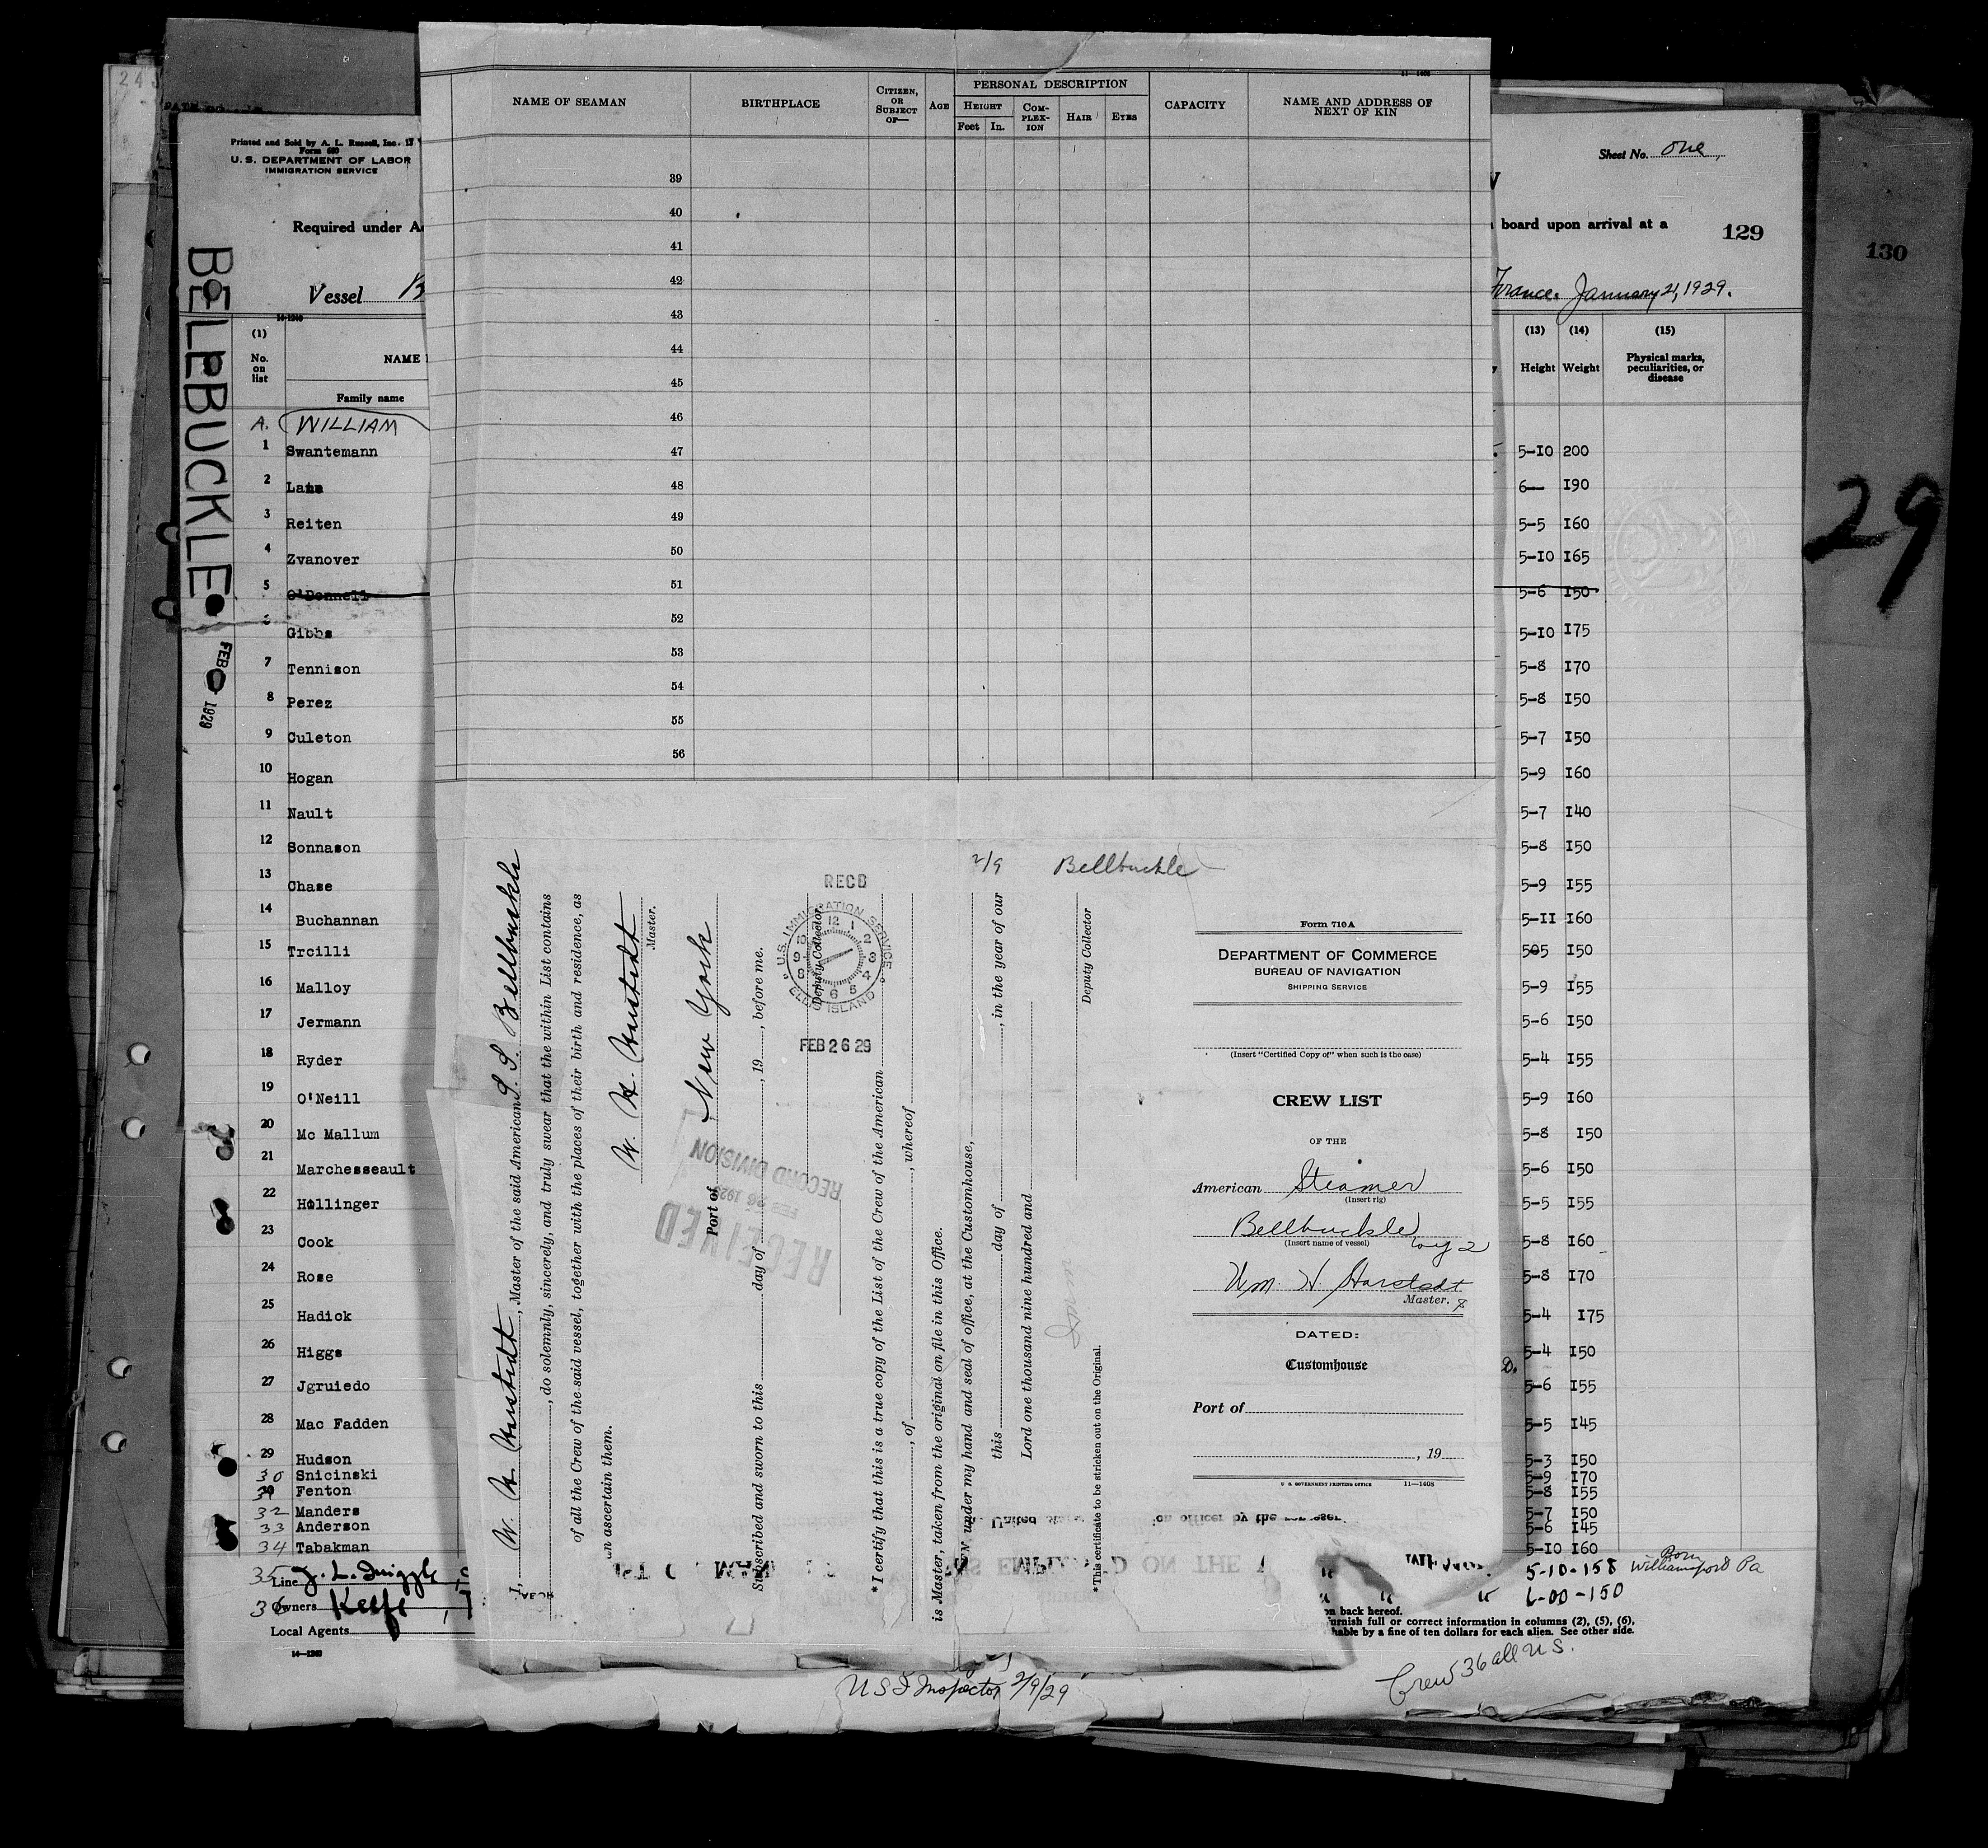 NAME OF SEAMAN
BIRTHPLACE
CITIZEN, OR SUBJECT OF—
AGE
PERSONAL DESCRIPTION
HEIGHT
Feet In.
COM-PLEX-ION
HAIR
EYES
CAPACITY
NAME AND ADDRESS OF NEXT OF KIN
11—1408
39
40
41
42
43
44
45
46
47
48
49
50
51
52
53
54
55
56
Printed and Sold by A. L. Russell, Inc.
Form 680
U. S. DEPARTMENT OF LABOR
IMMIGRATION SERVICE
Required under A
Vessel B
14-1240
BELLEBUCKLE
FEB 1929
(1)
No. on list
NAME
Family name
A. WILLIAM
1 Swantemann
2 Lahm
3 Reiten
4 Zvanover
5 O'Donnell
6 Gibbs
7 Tennison
8 Perez
9 Culeton
10 Hogan
11 Nault
12 Sonnason
13 Chase
14 Buchannan
15 Trcilli
16 Malloy
17 Jermann
18 Ryder
19 O'Neill
20 Mc Mallum
21 Marchesseault
22 Hollinger
23 Cook
24 Rose
25 Hadick
26 Higgs
27 Jgruiedo
28 Mac Fadden
29 Hudson
30 Snicinski
31 Fenton
32 Manders
33 Anderson
34 Tabakman
35 Line
36 Owners Keefe
Local Agents
14—1240
Sheet No. one
board upon arrival at a
129
130
France. January 21, 1929.
29
(13) (14) (15)
Height Weight
Physical marks, peculiarities, or disease
5-10 200
6— I90
5-5 I60
5-10 I65
5-6 I50
5-10 I75
5-8 I70
5-8 I50
5-7 I50
5-9 I60
5-7 I40
5-8 I50
5-9 I55
5-II I60
505 I50
5-9 I55
5-6 I50
5-4 I55
5-9 I60
5-8 I50
5-6 I50
5-5 I55
5-8 I60
5-8 I70
5-4 I75
5-4 I50
5-6 I55
5-5 I45
5-3 I50
5-9 I70
5-8 I55
5-7 I50
5-6 I45
5-10 I60
5-10-158 Born Williamsport Pa
6-00-150
on back hereof.
urnish full or correct information in columns (2), (5), (6),
hable by a fine of ten dollars for each alien. See other side.
Crew 36 all U S.
I, W. H. Harstedt, Master of the said American S. S. Bellbuckle
, do solemnly, sincerely, and truly swear that the within List contains
of all the Crew of the said vessel, together with the places of their birth and residence, as
an ascertain them.
W. H. Harstedt
Master.
Port of New York
Subscribed and sworn to this day of , 19 , before me.
Deputy Collector
RECD
U.S. IMMIGRATION SERVICE
ELLIS ISLAND
12 1 2 3 4 5 6 8 9
FEB 26 29
RECEIVED
FEB 26 1929
RECORD DIVISION
*I certify that this is a true copy of the List of the Crew of the American
, of , whereof
is Master, taken from the original on file in this Office.
under my hand and seal of office, at the Customhouse,
this day of , in the year of our
Lord one thousand nine hundred and
Deputy Collector
*This certificate to be stricken out on the Original.
2/9 Bellbuckle
Form 710 A
DEPARTMENT OF COMMERCE
BUREAU OF NAVIGATION
SHIPPING SERVICE
(Insert "Certified Copy of" when such is the case)
CREW LIST
OF THE
American Steamer
(Insert rig)
Bellbuckle
(Insert name of vessel)
voy 2
Wm. H. Harstedt
Master.
DATED:
Customhouse
Port of
, 19
U. S. GOVERNMENT PRINTING OFFICE 11—1408
United
on officer by the
EMPLOYED ON THE
U S I Inspector 2/9/29